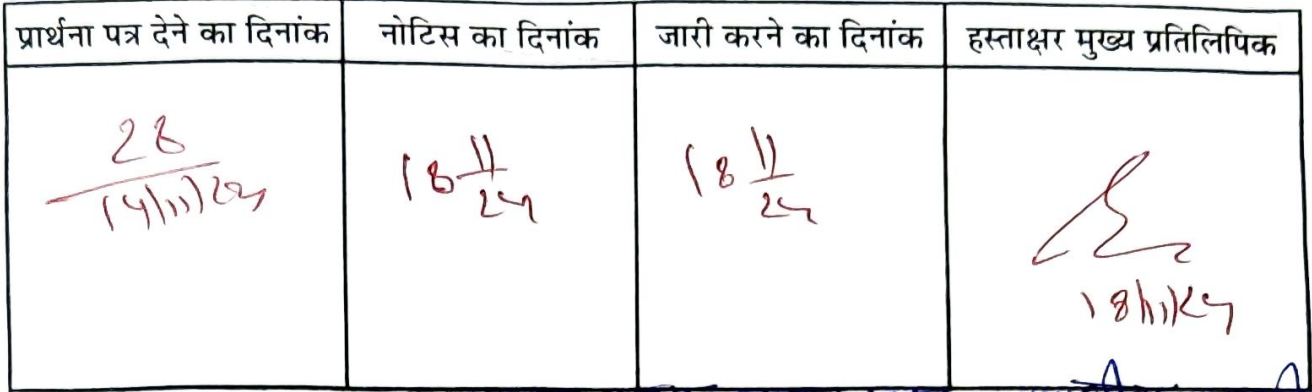 प्रार्थना पत्र देने का दिनांक नोटिस का दिनांक जारी करने का दिनांक हस्ताक्षर मुख्य प्रतिलिपिक
28
14/11/24
18 11/24
18 11/24
18/11/24